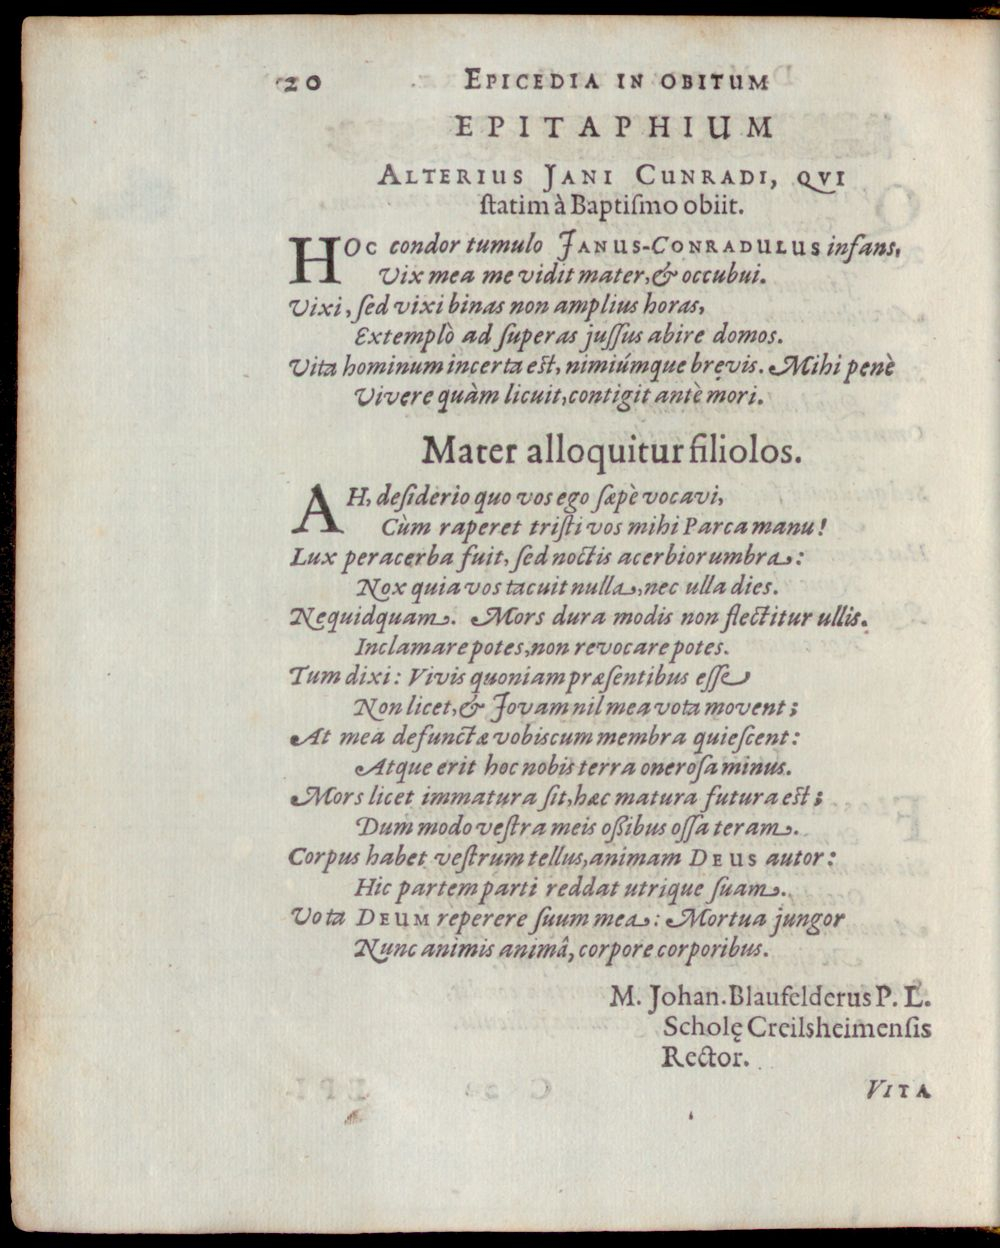 20 EPICEDIA IN OBITUM
EPITAPHIUM
ALTERIUS JANI CUNRADI, QVI
ſtatim à Baptiſmo obiit.
HOC condor tumulo JANUS-CONRADULUS infans,
Vix mea me vidit mater, & occubui.
Vixi, ſed vixi binas non amplius horas,
Extemplò ad ſuperas juſſus abire domos.
Vita hominum incerta est, nimiúmque brevis. Mihi penè
Vivere quàm licuit, contigit antè mori.
Mater alloquitur filiolos.
AH, deſiderio quo vos ego ſæpè vocavi,
Cùm raperet triſti vos mihi Parca manu!
Lux peracerba fuit, ſed noctis acerbior umbra:
Nox quia vos tacuit nulla, nec ulla dies.
Nequidquam. Mors dura modis non flectitur ullis.
Inclamare potes, non revocare potes.
Tum dixi: Vivis quoniam præſentibus eſſe
Non licet, & Jovam nil mea vota movent;
At mea defunctæ vobiscum membra quieſcent:
Atque erit hoc nobis terra oneroſa minus.
Mors licet immatura ſit, hæc matura futura est;
Dum modo veſtra meis oßibus oſſa teram.
Corpus habet veſtrum tellus, animam DEUS autor:
Hic partem parti reddat utrique ſuam.
Vota DEUM reperere ſuum mea: Mortua jungor
Nunc animis animâ, corpore corporibus.
M. Johan. Blaufelderus P. L.
Scholę Creilsheimenſis
Rector.
VITA